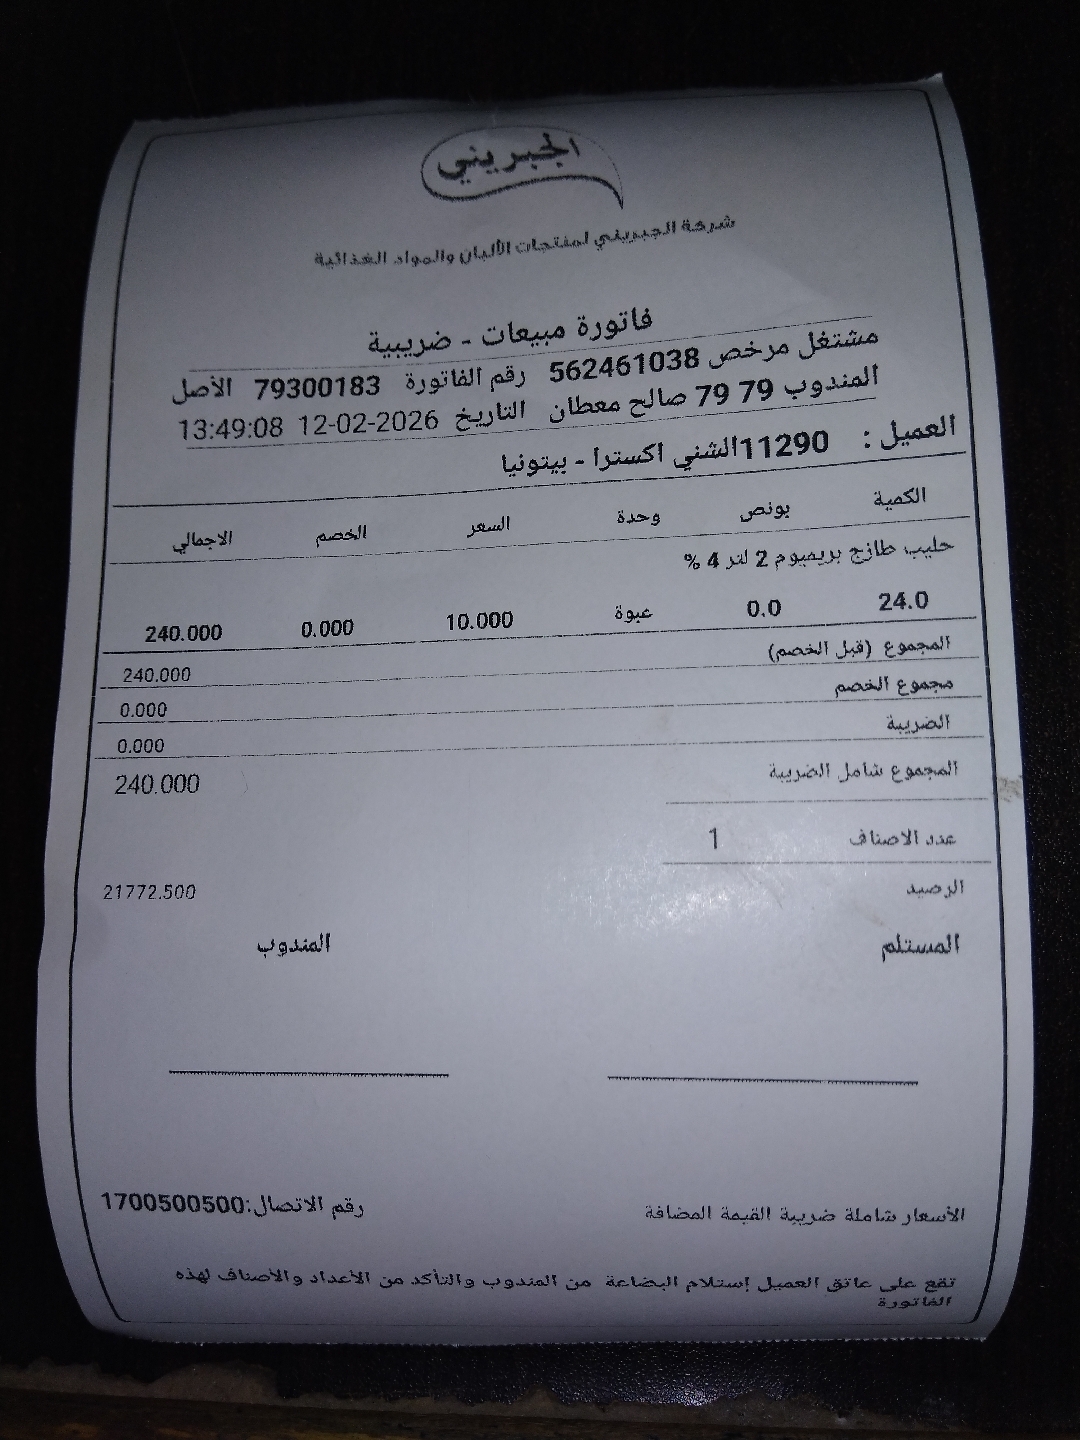 الجبريني
شركة الجبريني لمنتجات الألبان والمواد الغذائية
فاتورة مبيعات - ضريبية
مشتغل مرخص 562461038 رقم الفاتورة 79300183 الأصل
المندوب 79 79 صالح معطان التاريخ 12-02-2026 13:49:08
العميل : 11290الشني اكسترا - بيتونيا
الكمية بونص وحدة السعر الخصم الاجمالي
حليب طازج بريميوم 2 لتر 4 %
24.0 0.0 عبوة 10.000 0.000 240.000
المجموع (قبل الخصم) 240.000
مجموع الخصم 0.000
الضريبة 0.000
المجموع شامل الضريبة 240.000
عدد الاصناف 1
الرصيد 21772.500
المستلم المندوب
الأسعار شاملة ضريبة القيمة المضافة رقم الاتصال:1700500500
تقع على عاتق العميل إستلام البضاعة من المندوب والتأكد من الأعداد والأصناف لهذه
الفاتورة